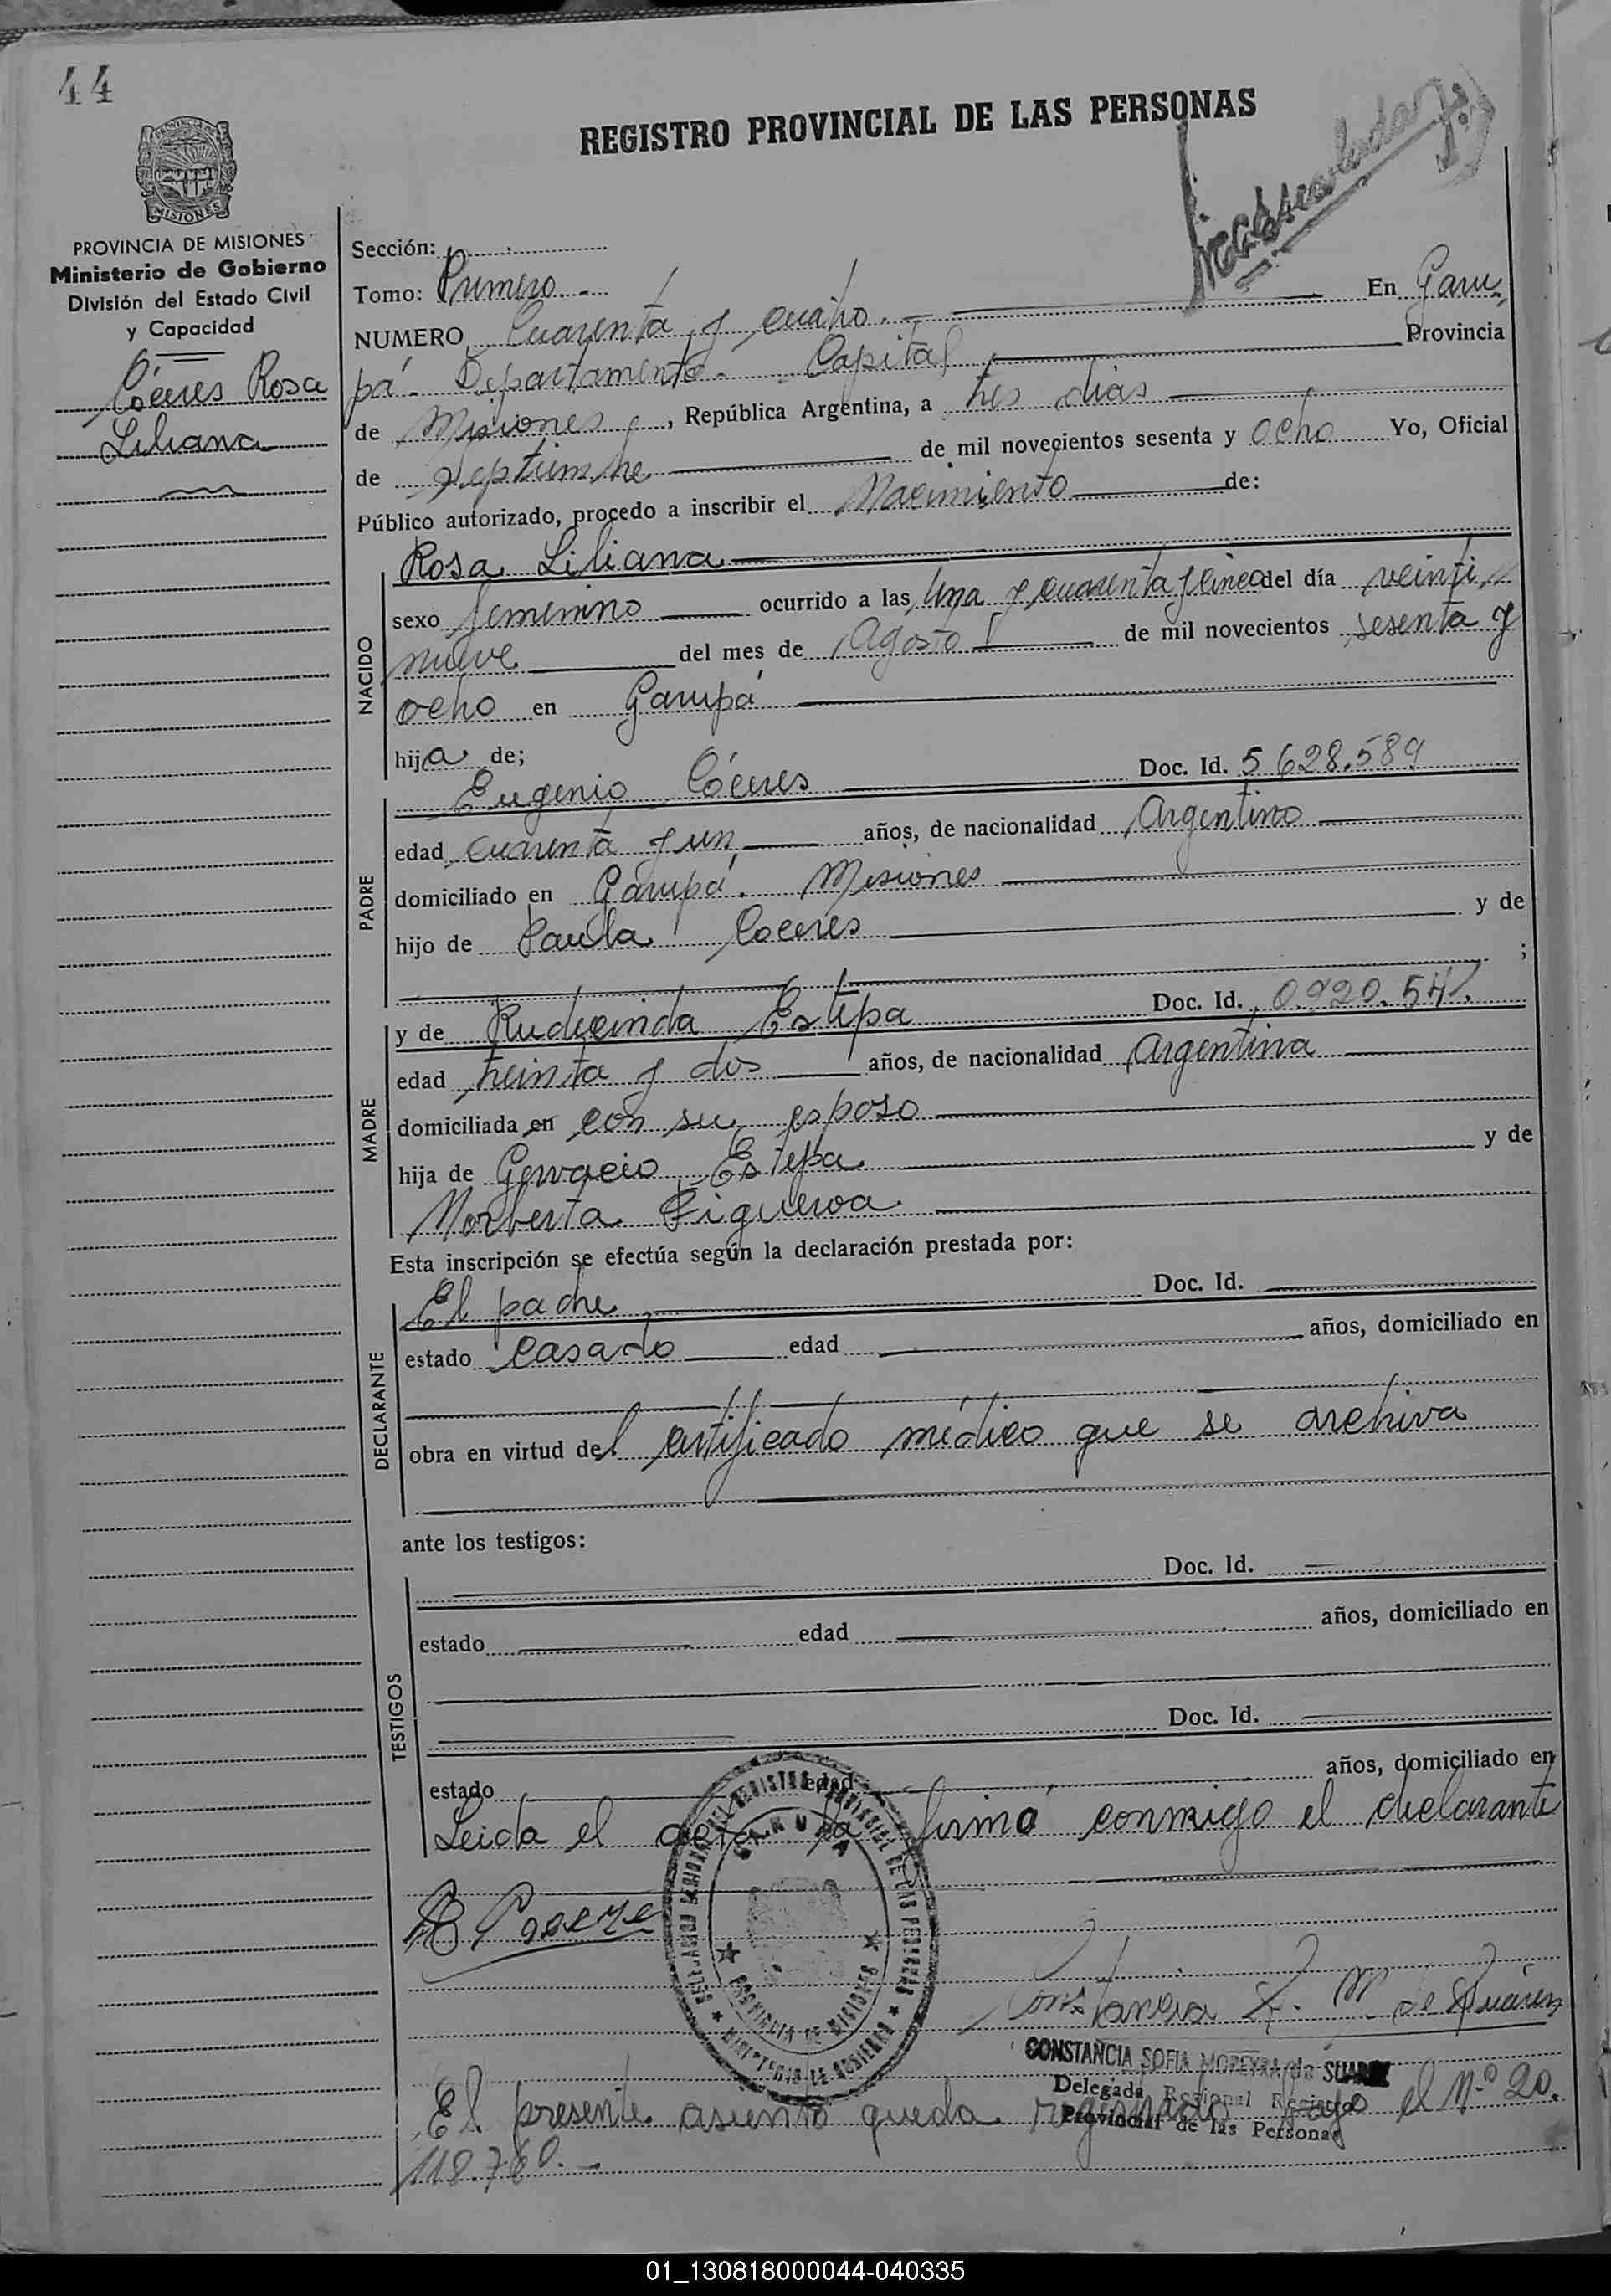 44
REGISTRO PROVINCIAL DE LAS PERSONAS
PROVINCIA DE
MISIONES
PROVINCIA DE MISIONES
Ministerio de Gobierno
División del Estado Civil
y Capacidad
Cóceres Rosa
Liliana
Sección:
Tomo: Primero.-
NUMERO Cuarenta y cuatro.- En Garu,,
pá - Departamento - Capital Provincia
de Misiones, República Argentina, a tres días
de Septiembre de mil novecientos sesenta y ocho Yo, Oficial
Público autorizado, procedo a inscribir el Nacimiento de:
NACIDO
Rosa Liliana
sexo femenino ocurrido a las una y cuarenta y cinco del día veinti,,
nueve del mes de Agosto de mil novecientos sesenta y
ocho en Garupá
hija de;
PADRE
Eugenio Cóceres Doc. Id. 5 628.589
edad cuarenta y un años, de nacionalidad Argentino
domiciliado en Garupá. Misiones
hijo de Paula Coceres y de
;
MADRE
y de Rudecinda Estepa Doc. Id.
edad treinta y dos años, de nacionalidad Argentina
domiciliada en con su esposo
hija de Gervacio Estepa y de
Norberta Figueroa
Esta inscripción se efectúa según la declaración prestada por:
DECLARANTE
El padre Doc. Id.
estado Casado edad años, domiciliado en
obra en virtud del certificado médico que se archiva
ante los testigos:
TESTIGOS
Doc. Id.
estado edad años, domiciliado en
Doc. Id.
estado edad años, domiciliado en
Leida el acta la firmó conmigo el declarante
Constancia S. M. de Suárez
CONSTANCIA SOFIA MOREYRA de SUAREZ
Delegada Regional Registro
Provincial de las Personas
El presente asiento queda registrado bajo el Nº 20.
118.760.-
01_130818000044-040335